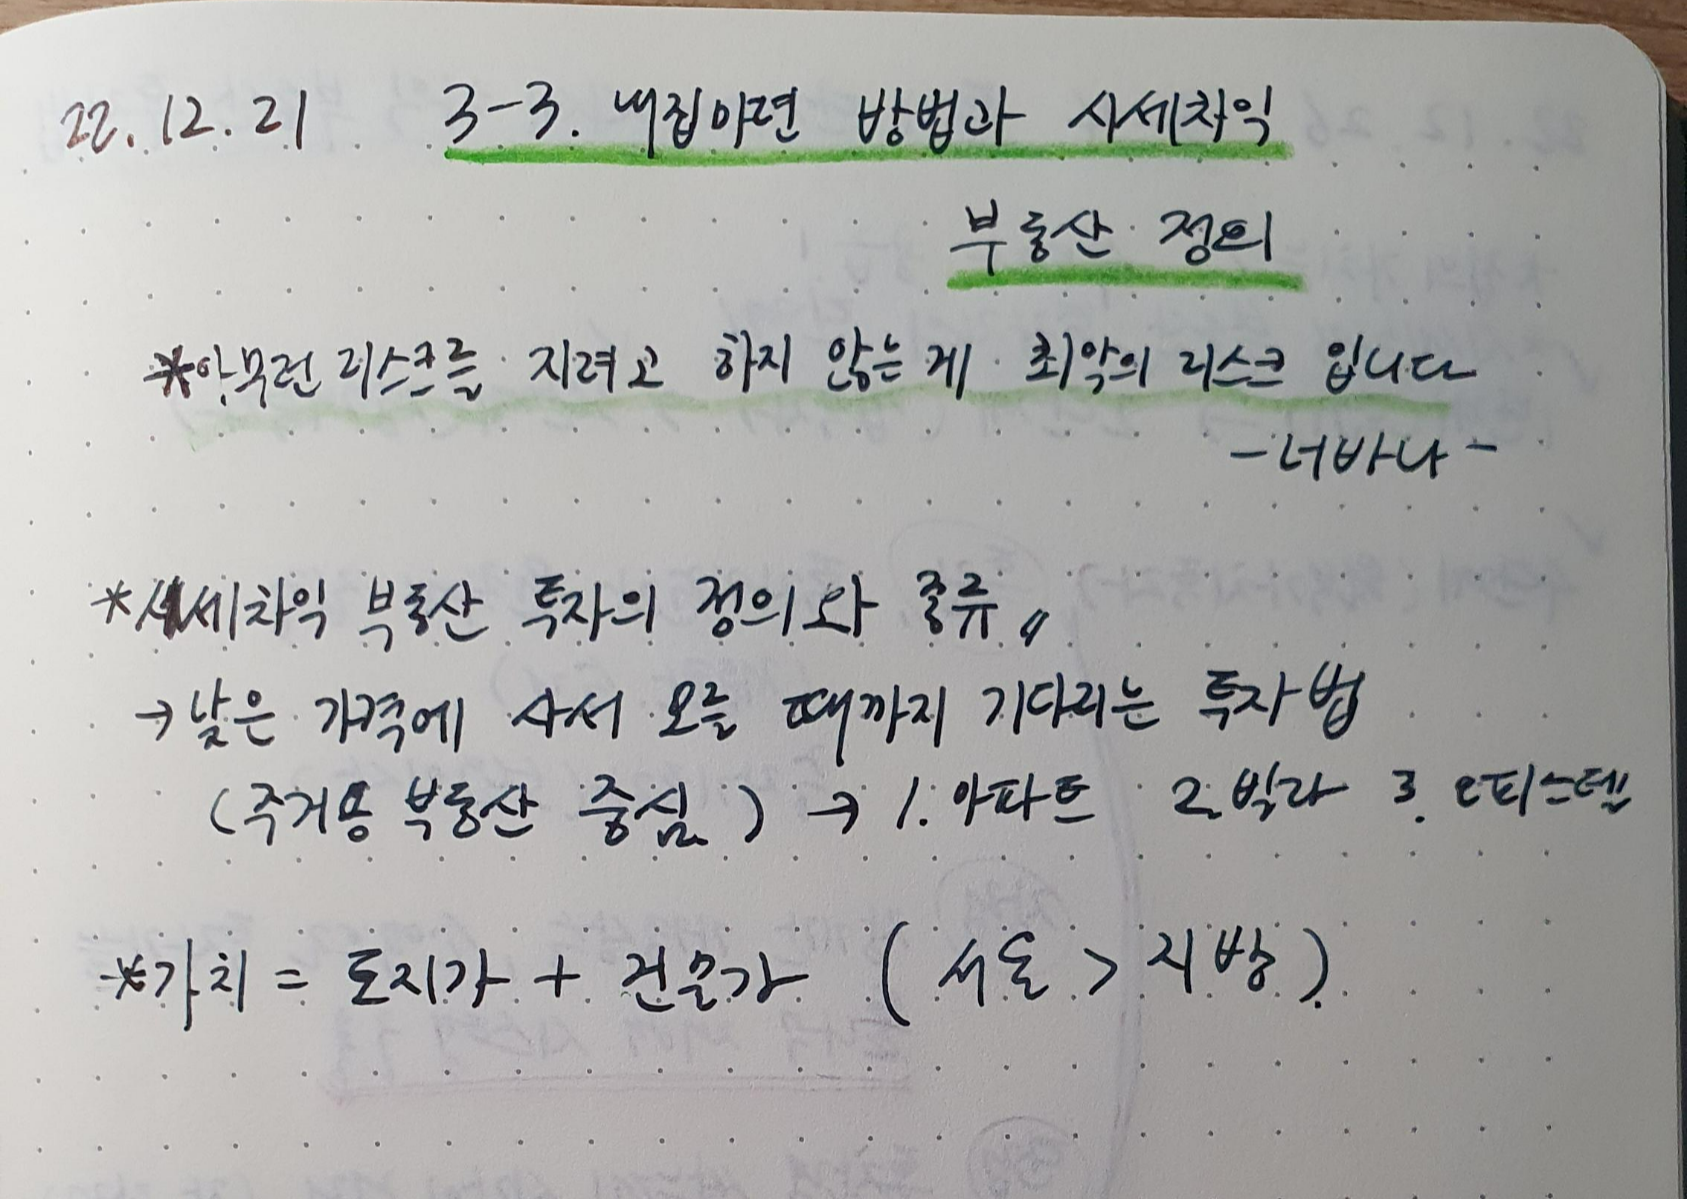 22.12.21 3-3. 내집마련 방법과 시세차익
부동산 정의
*아무런 리스크를 지려고 하지 않는 게 최악의 리스크 입니다
-너바나-
*시세차익 부동산 투자의 정의와 종류〃
→낮은 가격에 사서 오늘 때까지 기다리는 투자법
(주거용 부동산 중심) → 1. 아파트 2. 빌라 3. 오피스텔
*가치 = 토지가 + 건물가 (서울 > 지방)